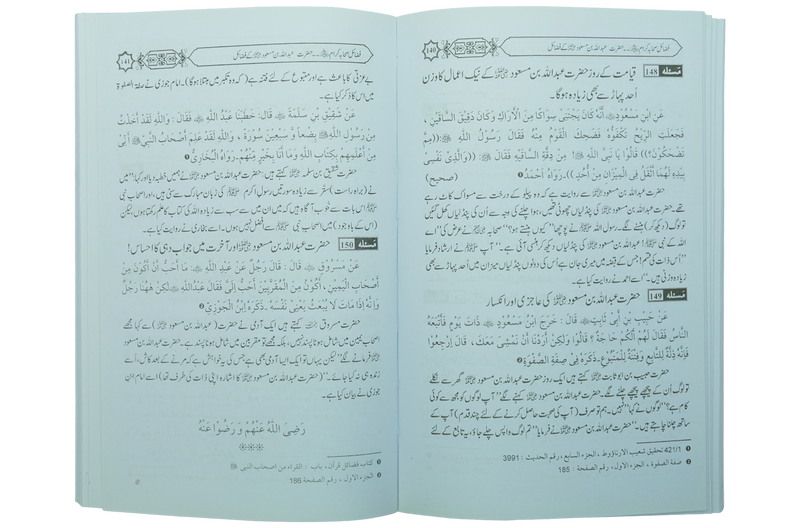 140
فضائل صحابہ کرام ﷢ ... حضرت عبداللہ بن مسعود ﷜ کے فضائل
مسئله 148 قیامت کے روز حضرت عبداللہ بن مسعود ﷜ کے نیک اعمال کا وزن
اُحد پہاڑ سے بھی زیادہ ہوگا۔
عَنِ ابْنِ مَسْعُودٍ ﷜ أَنَّهُ كَانَ يَجْتَنِي سِوَاكًا مِنَ الْأَرَاكِ وَكَانَ دَقِيقَ السَّاقَيْنِ ،
فَجَعَلَتِ الرِّيحُ تَكْفَؤُهُ فَضَحِكَ الْقَوْمُ مِنْهُ فَقَالَ رَسُولُ اللَّهِ ﷺ ((مِمَّ
تَضْحَكُونَ؟)) قَالُوا يَا نَبِيَّ اللَّهِ! مِنْ دِقَّةِ السَّاقَيْهِ فَقَالَ ﷺ : ((وَالَّذِي نَفْسِي
بِيَدِهِ لَهُمَا أَثْقَلُ فِي الْمِيزَانِ مِنْ أُحُدٍ)) رَوَاهُ أَحْمَدُ (صحيح)
حضرت عبداللہ بن مسعود ﷜ سے روایت ہے کہ وہ پیلو کے درخت سے مسواک کاٹ رہے
تھے۔ حضرت عبداللہ بن مسعود ﷜ کی پنڈلیاں چھوٹی تھیں، ہوا چلنے کی وجہ سے اُن کی پنڈلیاں کھل گئیں
لوگ (دیکھ کر) ہنسنے لگے۔ رسول اللہ ﷺ نے پوچھا "کیوں ہنستے ہو؟" صحابہ ﷢ نے عرض کی "اے
اللہ کے نبی ﷺ! عبداللہ بن مسعود ﷜ کی پنڈلیاں دیکھ کر ہنسی آئی ہے۔" آپ ﷺ نے ارشاد فرمایا
"اُس ذات کی قسم! جس کے قبضہ میں میری جان ہے اُس کی دونوں پنڈلیاں میزان میں اُحد پہاڑ سے بھی
زیادہ وزنی ہیں۔" اسے احمد نے روایت کیا ہے۔
مسئله 149 حضرت عبداللہ بن مسعود ﷜ کی عاجزی اور انکسار
عَنْ حَبِيبِ بْنِ أَبِي ثَابِتٍ قَالَ : خَرَجَ ابْنُ مَسْعُودٍ ﷜ ذَاتَ يَوْمٍ فَاتَّبَعَهُ
النَّاسُ فَقَالَ لَهُمْ أَلَكُمْ حَاجَةٌ ؟ قَالُوا : لَا وَلَكِنْ أَرَدْنَا أَنْ نَمْشِيَ مَعَكَ ، قَالَ اِرْجِعُوا
فَإِنَّهُ ذِلَّةٌ لِلتَّابِعِ وَفِتْنَةٌ لِلْمَتْبُوعِ . ذَكَرَهُ فِي صِفَةِ الصَّفْوَةِ
حضرت حبیب بن ابو ثابت ﷫ کہتے ہیں ایک روز حضرت عبداللہ بن مسعود ﷜ گھر سے نکلے
تو لوگ اُن کے پیچھے پیچھے چلنے لگے۔ حضرت عبداللہ بن مسعود ﷜ کہنے لگے "آپ لوگوں کو مجھ سے کوئی
کام ہے؟" لوگوں نے کہا "نہیں۔ ہم تو صرف (آپ کی صحبت حاصل کرنے کے لئے چند قدم) آپ کے
ساتھ چلنا چاہتے ہیں۔" حضرت عبداللہ بن مسعود ﷜ نے فرمایا "تم لوگ واپس چلے جاؤ، یہ تابع کے لئے
421/1 تحقيق شعيب الارناؤوط ، الجزء السابع ، رقم الحديث : 3991
صفة الصفوة ، الجزء الاول ، رقم الصفحة : 185
141
فضائل صحابہ کرام ﷢ ... حضرت عبداللہ بن مسعود ﷜ کے فضائل
بے عزتی کا باعث ہے اور متبوع کے لئے فتنہ ہے (کہ وہ تکبر میں مبتلا ہوگا)۔ امام جوزی نے صفۃ الصفوۃ
میں اس کا ذکر کیا ہے۔
عَنْ شَقِيقِ بْنِ سَلَمَةَ قَالَ: خَطَبَنَا عَبْدُ اللَّهِ ﷜ فَقَالَ: وَاللَّهِ لَقَدْ أَخَذْتُ
مِنْ رَسُولِ اللَّهِ ﷺ بِضْعًا وَسَبْعِينَ سُورَةً ، وَاللَّهِ لَقَدْ عَلِمَ أَصْحَابُ النَّبِيِّ ﷺ أَنِّي
مِنْ أَعْلَمِهِمْ بِكِتَابِ اللَّهِ وَمَا أَنَا بِخَيْرِهِمْ. رَوَاهُ الْبُخَارِيُّ
حضرت شقیق بن سلمہ ﷫ کہتے ہیں: حضرت عبداللہ بن مسعود ﷜ نے ہمیں خطبہ دیا اور کہا "میں
نے (براہ راست) ستر سے زیادہ سورتیں رسول اکرم ﷺ کی زبان مبارک سے سنی ہیں، اور اصحاب نبی
ﷺ اس بات سے خوب آگاہ ہیں کہ میں ان میں سب سے زیادہ اللہ کی کتاب کا علم رکھتا ہوں لیکن
(اس کے باوجود) میں اصحاب نبی ﷺ سے افضل نہیں ہوں۔ اسے بخاری نے روایت کیا ہے۔
مسئله 150 حضرت عبداللہ بن مسعود ﷜ اور آخرت میں جواب دہی کا احساس!
عَنْ مَسْرُوقٍ ﷫ قَالَ : قَالَ رَجُلٌ عَنْ عَبْدِ اللَّهِ ﷜ : مَا أُحِبُّ أَنْ أَكُونَ مِنْ
أَصْحَابِ الْيَمِينِ ، أَكُونُ مِنَ الْمُقَرَّبِينَ أَحَبُّ إِلَيَّ فَقَالَ عَبْدُ اللَّهِ ﷜ لَكِنْ هٰهُنَا رَجُلٌ
وَدَّ أَنَّهُ إِذَا مَاتَ لَا يُبْعَثُ يَعْنِي نَفْسَهُ . ذَكَرَهُ ابْنُ الْجَوْزِيِّ
حضرت مسروق ﷫ کہتے ہیں ایک آدمی نے حضرت (عبداللہ بن مسعود ﷜) سے کہا مجھے
اصحاب یمین میں شامل ہونا پسند نہیں، بلکہ مجھے تو مقربین میں شامل ہونا پسند ہے۔ حضرت عبداللہ بن مسعود
﷜ فرمانے لگے "لیکن یہاں تو ایک ایسا آدمی بھی ہے جس کی یہ خواہش ہے کہ مرنے کے بعد کاش، اسے
زندہ ہی نہ کیا جائے۔" (حضرت عبداللہ بن مسعود ﷜ کا اشارہ اپنی ذات کی طرف تھا) اسے امام ابن
جوزی نے بیان کیا ہے۔
رَضِيَ اللَّهُ عَنْهُمْ وَ رَضُوْا عَنْهُ
كتاب فضائل قرآن ، باب : القراء من اصحاب النبى ﷺ
الجزء الاول ، رقم الصفحة 186